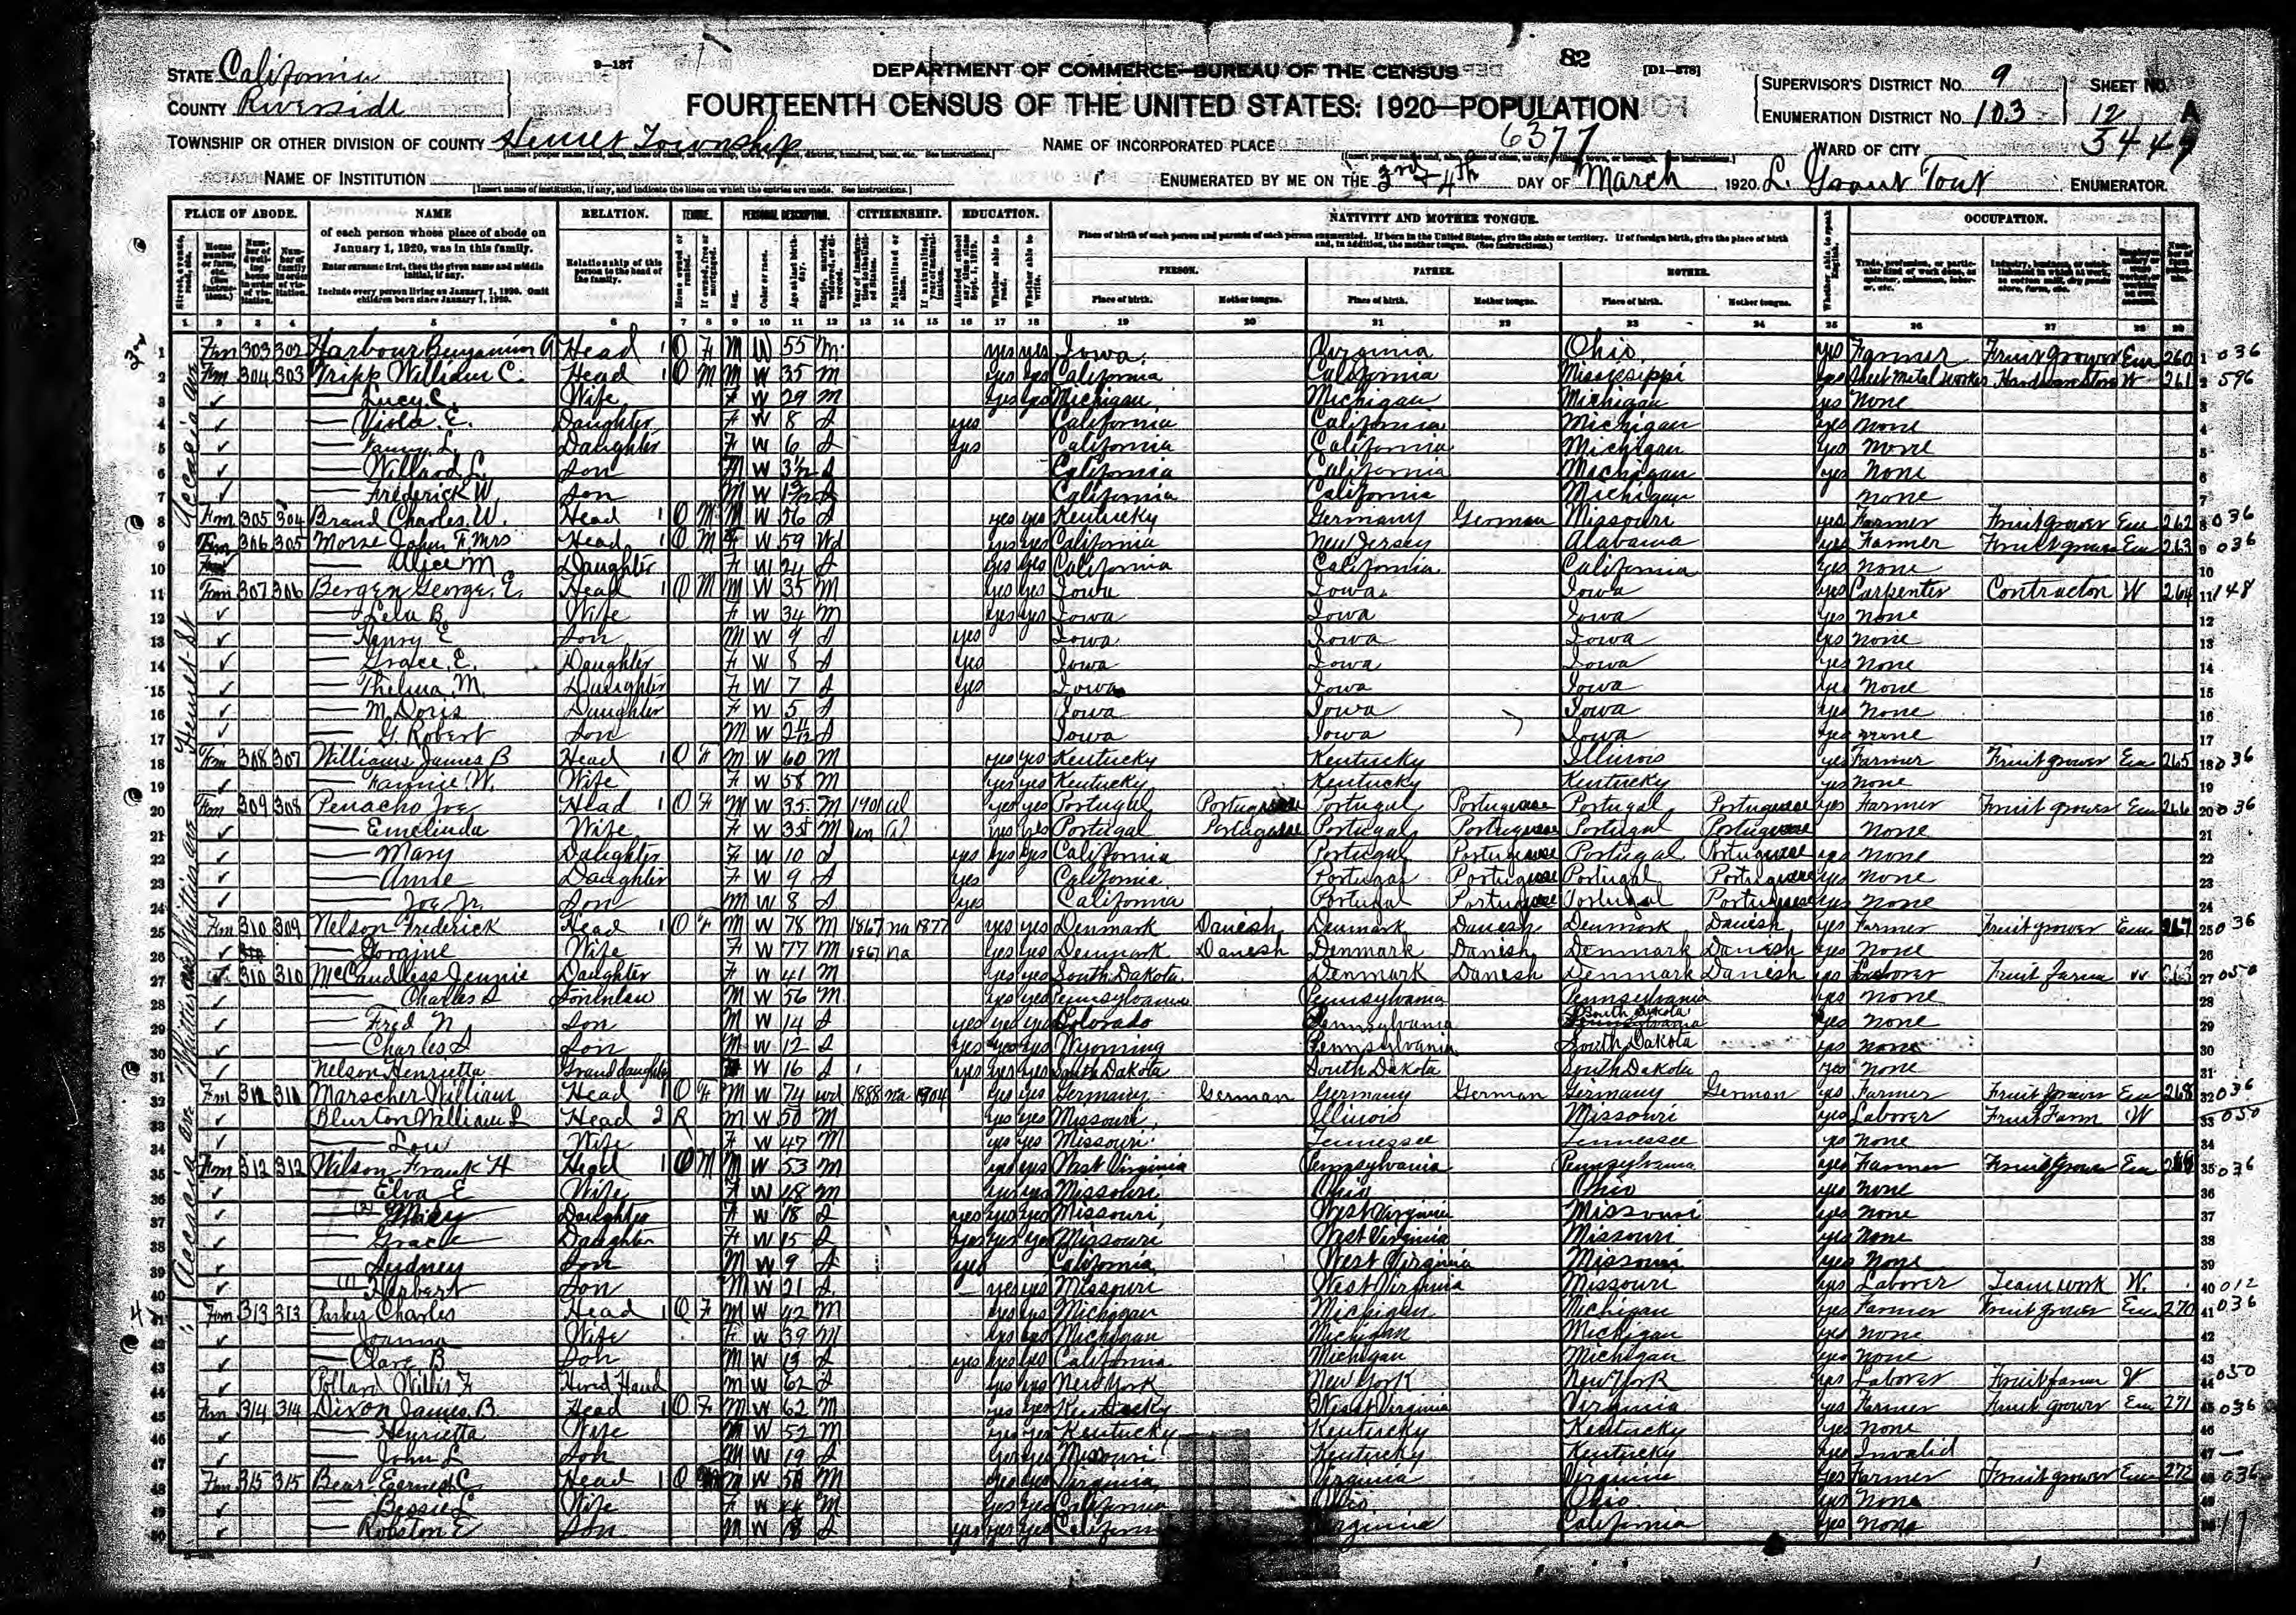 82
9—137
[D1—578]
STATE California
COUNTY Riverside
DEPARTMENT OF COMMERCE—BUREAU OF THE CENSUS
FOURTEENTH CENSUS OF THE UNITED STATES: 1920—POPULATION
SUPERVISOR'S DISTRICT No. 9
ENUMERATION DISTRICT No. 103
SHEET No. 12 A
TOWNSHIP OR OTHER DIVISION OF COUNTY Hemet Township
NAME OF INCORPORATED PLACE
6377
WARD OF CITY
NAME OF INSTITUTION
ENUMERATED BY ME ON THE 3rd-4th DAY OF March, 1920. L. Grant Tout ENUMERATOR.
PLACE OF ABODE. NAME RELATION. TENURE. PERSONAL DESCRIPTION. CITIZENSHIP. EDUCATION. NATIVITY AND MOTHER TONGUE. OCCUPATION.
of each person whose place of abode on January 1, 1920, was in this family.
Enter surname first, then the given name and middle initial, if any.
Include every person living on January 1, 1920. Omit children born since January 1, 1920.
Relationship of this person to the head of the family.
PERSON. FATHER. MOTHER.
Place of birth. Mother tongue. Place of birth. Mother tongue. Place of birth. Mother tongue.
1 2 3 4 5 6 7 8 9 10 11 12 13 14 15 16 17 18 19 20 21 22 23 24 25 26 27 28 29
1 Fm 303 302 Harbour Benjamin A Head 1 O F M W 55 M yes yes Iowa Virginia Ohio yes Farmer Fruit grower Em 260 036
2 Fm 304 303 Tripp William C. Head 1 O M M W 35 M yes yes California California Mississippi yes Sheet Metal Worker Hardware Store W 261 596
3 — Lucy C. Wife F W 29 M yes yes Michigan Michigan Michigan yes None
4 — Viola E. Daughter F W 8 S yes California California Michigan yes None
5 — L. Daughter F W 6 S yes California California Michigan yes None
6 — Willard L. Son M W 3 S California California Michigan yes None
7 — Frederick W. Son M W S California California Michigan none
8 Fm 305 304 Brand Charles W. Head 1 O M M W 56 S yes yes Kentucky Germany German Missouri yes Farmer Fruit grower Em 262 036
9 Fm 306 305 Morse John F. Mrs Head 1 O M F W 59 Wd yes yes California New Jersey Alabama yes Farmer Fruit grower Em 263 036
10 — Alice M Daughter F W 24 S yes yes California California California yes None
11 Fm 307 306 Bergen George E. Head 1 O M M W 35 M yes yes Iowa Iowa Iowa yes Carpenter Contractor W 264 148
12 — Lela B Wife F W 34 M yes yes Iowa Iowa Iowa yes None
13 — Henry E Son M W 9 S yes Iowa Iowa Iowa yes None
14 — Grace E. Daughter F W 8 S yes Iowa Iowa Iowa yes None
15 — Thelma M. Daughter F W 7 S yes Iowa Iowa Iowa yes None
16 — M Doris Daughter F W 5 S Iowa Iowa Iowa yes None
17 — G. Robert Son M W 2 11/12 S Iowa Iowa Iowa yes none
18 Fm 308 307 Williams James B Head 1 O F M W 60 M yes yes Kentucky Kentucky Illinois yes Farmer Fruit grower Em 265 036
19 — Fannie W. Wife F W 58 M yes yes Kentucky Kentucky Kentucky yes none
20 Fm 309 308 Penacho Joe Head 1 O F M W 35 M 1901 al yes yes Portugal Portuguese Portugal Portuguese Portugal Portuguese yes Farmer Fruit grower Em 266 036
21 — Emelinda Wife F W 35 M un Al yes yes Portugal Portuguese Portugal Portuguese Portugal Portuguese None
22 — Mary Daughter F W 10 S yes yes yes California Portugal Portuguese Portugal Portuguese yes None
23 — Annie Daughter F W 9 S yes California Portugal Portuguese Portugal Portuguese yes None
24 — Joe Jr. Son M W 8 S yes California Portugal Portuguese Portugal Portuguese yes None
25 Fm 310 309 Nelson Frederick Head 1 O F M W 78 M 1867 na 1877 yes yes Denmark Danish Denmark Danish Denmark Danish yes Farmer Fruit grower Em 267 036
26 — Wife F W 77 M 1867 na yes yes Denmark Danish Denmark Danish Denmark Danish yes None
27 310 310 McCandless Jennie Daughter F W 41 M yes yes South Dakota Denmark Danish Denmark Danish yes Laborer Fruit farm W 050
28 — Charles S Son in law M W 56 M yes yes Pennsylvania Pennsylvania Pennsylvania yes none
29 — Fred N Son M W 14 S yes yes yes Colorado Pennsylvania South Dakota yes None
30 — Charles S Son M W 12 S yes yes yes Wyoming Pennsylvania South Dakota yes none
31 Nelson Henrietta Granddaughter W 16 S yes yes yes South Dakota South Dakota South Dakota yes none
32 Fm 311 311 Marscher William Head 1 O F M W 74 wd 1888 na 1904 yes yes Germany German Germany German Germany German yes Farmer Fruit Grower Em 268 036
33 Blurton William L Head 2 R M W 50 M yes yes Missouri Illinois Missouri yes Laborer Fruit Farm W 050
34 — Lou Wife F W 47 M yes yes Missouri Tennessee Tennessee yes none
35 Fm 312 312 Wilson Frank H Head 1 O M M W 53 M yes yes West Virginia Pennsylvania Pennsylvania yes Farmer Fruit Grower Em 036
36 — Elva E Wife F W 48 M yes yes Missouri Ohio Ohio yes none
37 — (2) Daughter F W 18 S yes yes yes Missouri West Virginia Missouri yes None
38 — Gracie Daughter F W 15 S yes yes yes Missouri West Virginia Missouri yes None
39 — Sydney Son M W 9 S yes California West Virginia Missouri yes None
40 — (1) Herbert Son M W 21 S yes yes Missouri West Virginia Missouri yes Laborer Team work W. 012
41 Fm 313 313 Parker Charles Head 1 O F M W 42 M yes yes Michigan Michigan Michigan yes Farmer Fruit grower Em 270 036
42 — Joanna Wife F W 39 M yes yes Michigan Michigan Michigan yes none
43 — Clare B Son M W 13 S yes yes yes California Michigan Michigan yes none
44 Pollard Willis F Hired Hand M W 62 S yes yes New York New York New York yes Laborer Fruit farm W 050
45 Fm 314 314 Dixon James B. Head 1 O F M W 62 M yes yes Kentucky West Virginia Virginia yes Farmer Fruit grower Em 271 036
46 — Henrietta Wife W 52 M yes yes Kentucky Kentucky Kentucky yes None
47 — John L Son M W 19 S yes yes Missouri Kentucky Kentucky yes Invalid
48 Fm 315 315 Bear Ernest C. Head 1 O M W 50 M yes yes Virginia Virginia Virginia yes Farmer Fruit grower Em 272 036
49 — Bessie L Wife F W 44 M yes yes California Ohio Ohio yes None
50 — E Son M W 18 S yes yes yes California Virginia California yes None